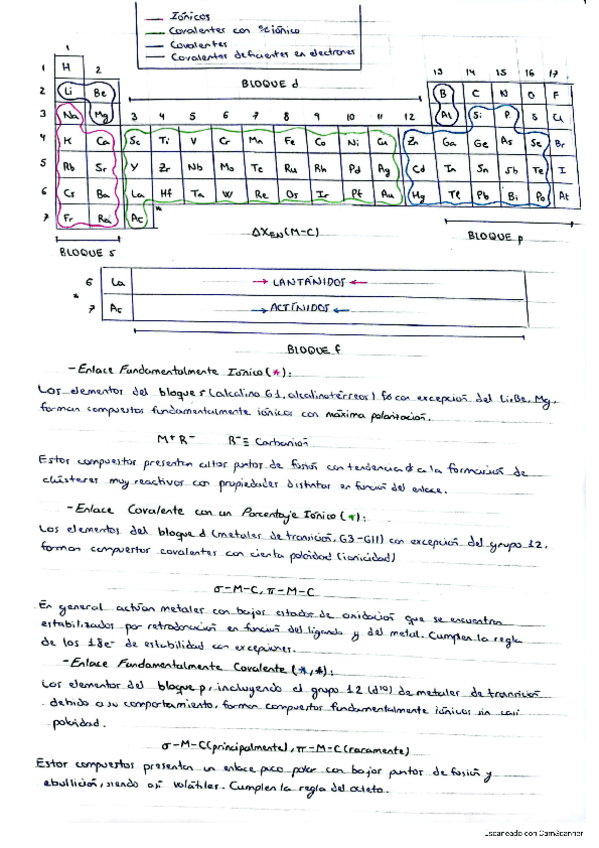 Iónicos
Covalentes con % iónico
Covalentes
Covalentes deficientes en electrones
1
1 H 2 13 14 15 16 17
2 Li Be BLOQUE d B C N O F
3 Na Mg 3 4 5 6 7 8 9 10 11 12 Al Si P S Cl
4 K Ca Sc Ti V Cr Mn Fe Co Ni Cu Zn Ga Ge As Se Br
5 Rb Sr Y Zr Nb Mo Tc Ru Rh Pd Ag Cd In Sn Sb Te I
6 Cs Ba La Hf Ta W Re Os Ir Pt Au Hg Tl Pb Bi Po At
7 Fr Ra Ac *
ΔXEN(M-C)
BLOQUE p
BLOQUE s
6 La → LANTÁNIDOS ←
*
7 Ac → ACTÍNIDOS ←
BLOQUE f
- Enlace Fundamentalmente Iónico (*):
Los elementos del bloque s (alcalino G1, alcalinotérreos) con excepción del Li, Be, Mg,
forman compuestos fundamentalmente iónicos con máxima polarización.
M⁺R⁻ R⁻≡ Carbanión
Estos compuestos presentan altos puntos de fusión con tendencia a la formación de
clústeres muy reactivos con propiedades distintas en función del enlace.
- Enlace Covalente con un Porcentaje Iónico (*):
Los elementos del bloque d (metales de transición, G3-G11) con excepción del grupo 12,
forman compuestos covalentes con cierta polaridad (ionicidad)
σ-M-C, π-M-C
En general actúan metales con bajos estados de oxidación que se encuentran
estabilizados por retrodonación en función del ligando y del metal. Cumplen la regla
de los 18e⁻ de estabilidad con excepciones.
- Enlace Fundamentalmente Covalente (*,*):
Los elementos del bloque p, incluyendo el grupo 12 (d¹⁰) de metales de transición
debido a su comportamiento, forman compuestos fundamentalmente iónicos sin casi
polaridad.
σ-M-C (principalmente), π-M-C (raramente)
Estos compuestos presentan un enlace poco polar con bajos puntos de fusión y
ebullición, siendo así volátiles. Cumplen la regla del octeto.
Escaneado con CamScanner